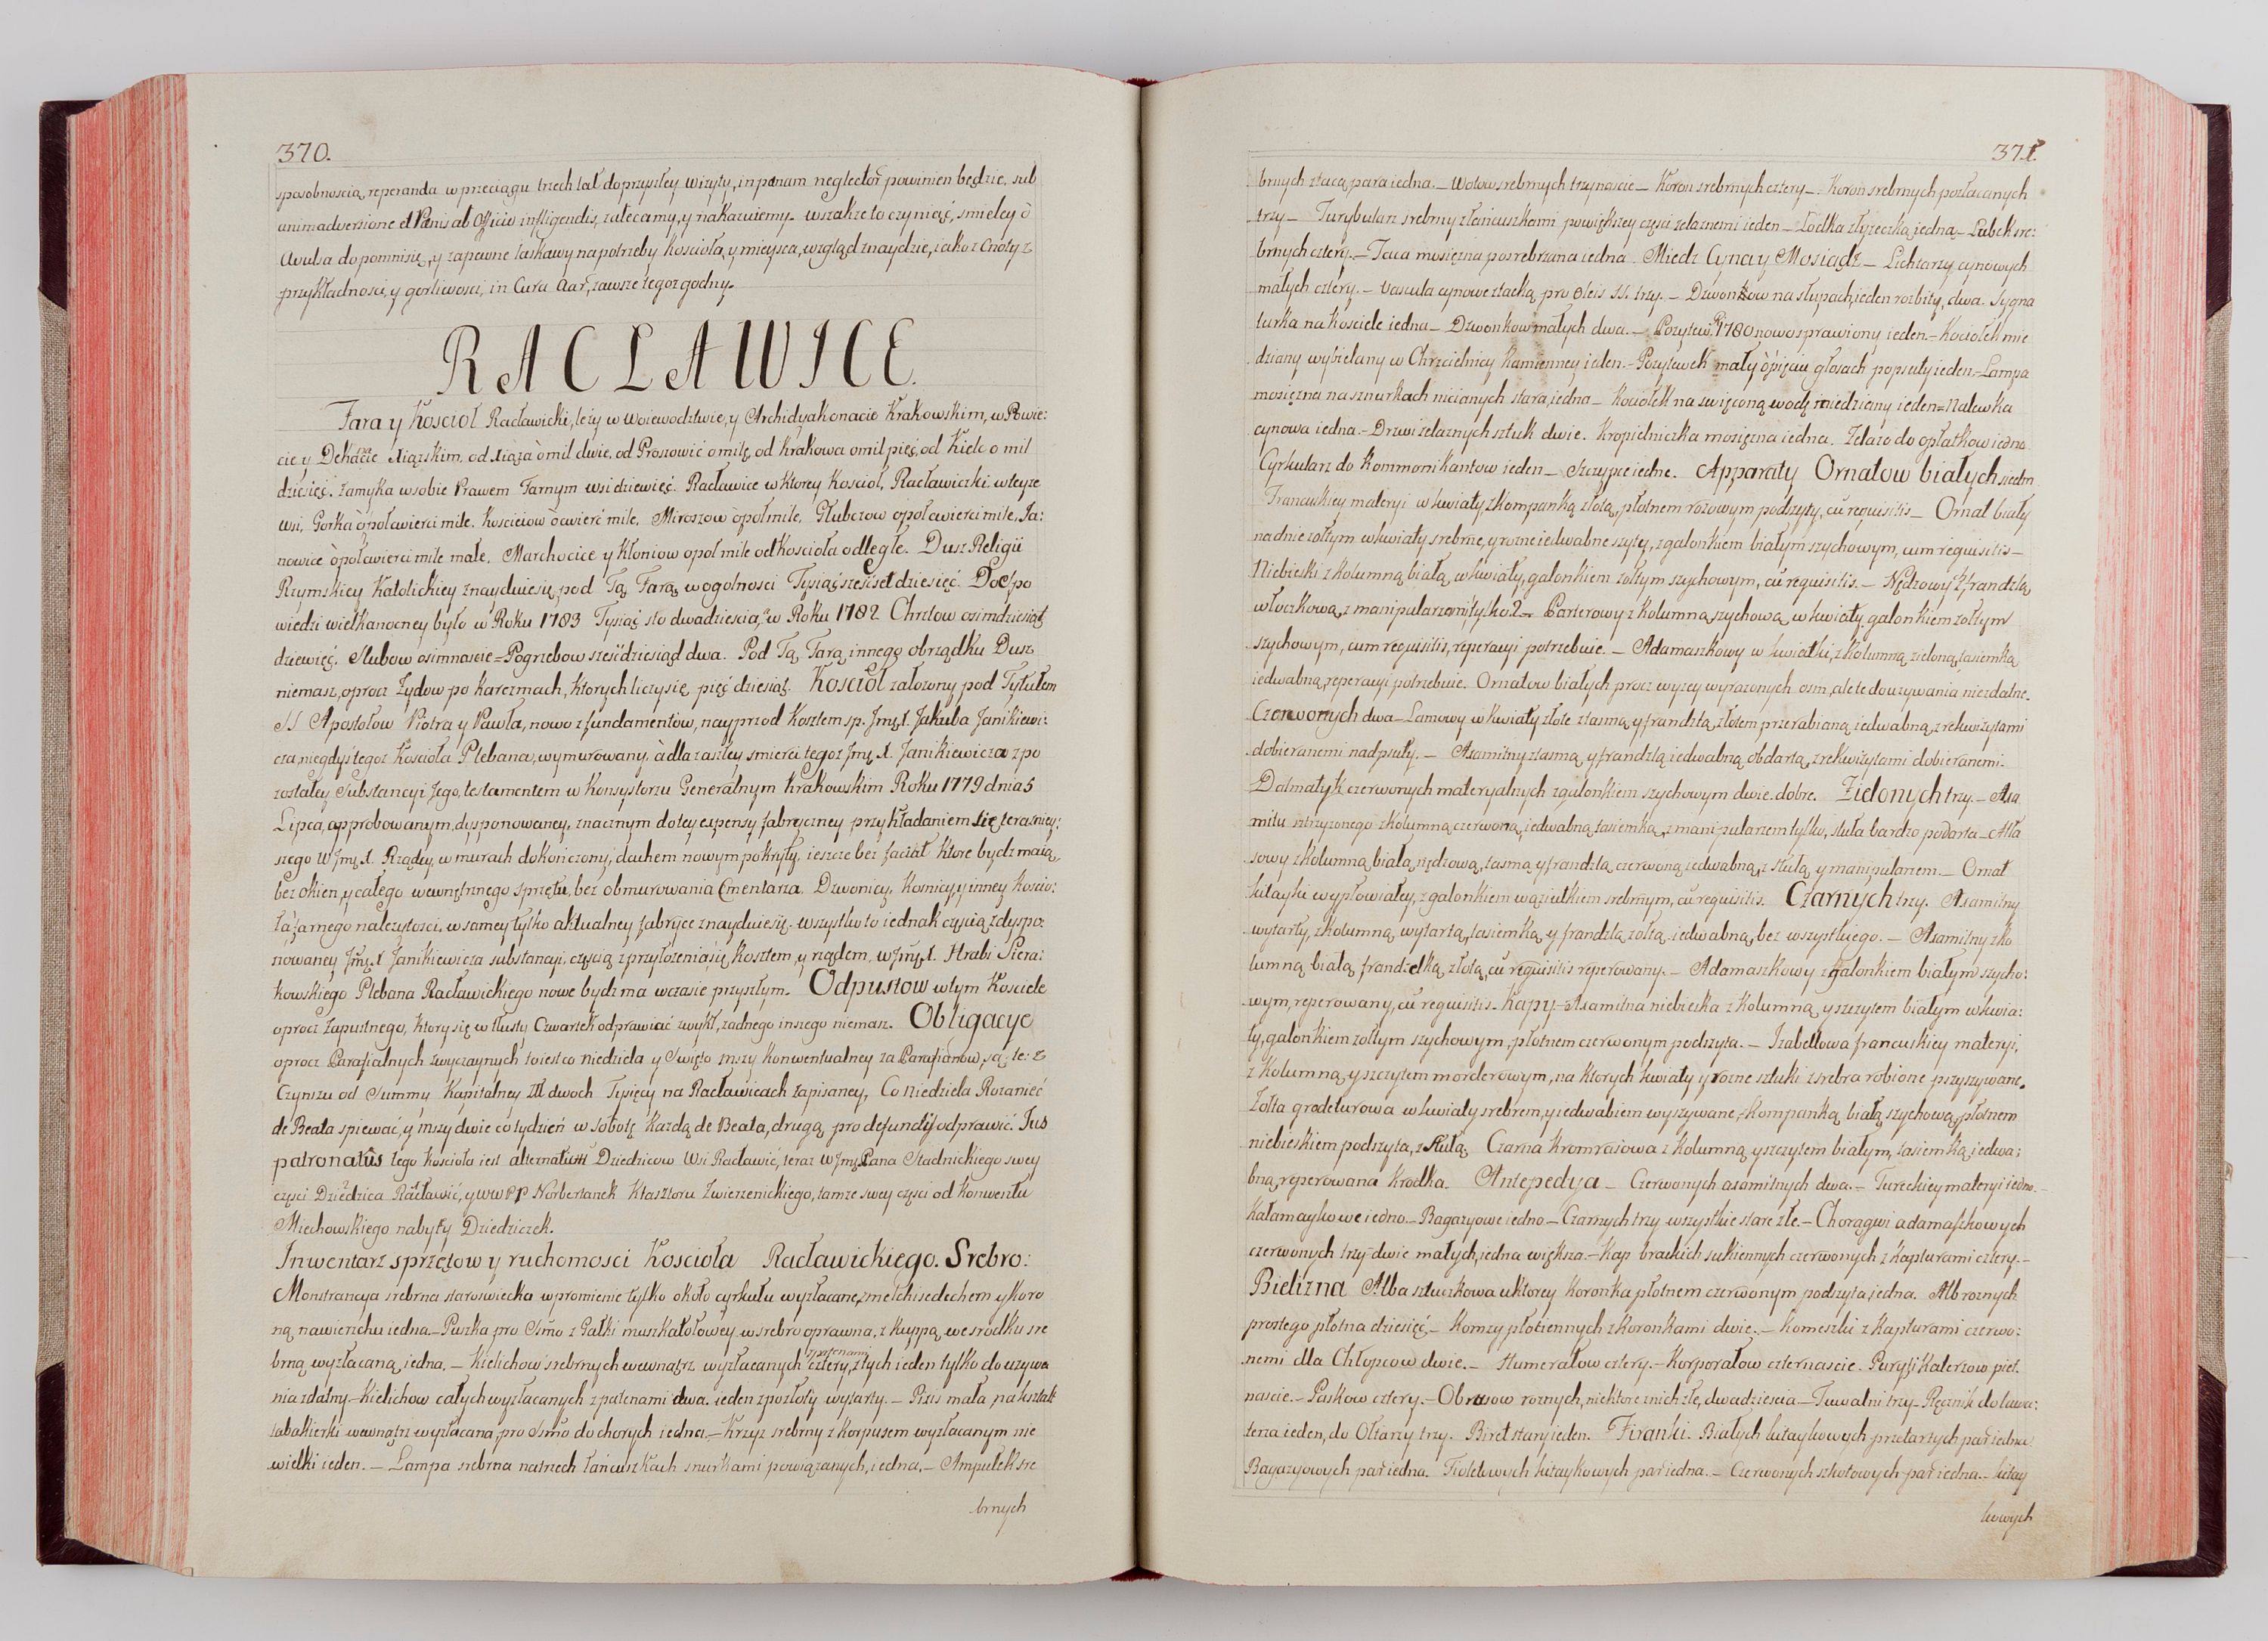 370.
sposobnoscią, reperanda w przeciągu trzech lat do przyszłey wizyty, in pœnam neglectûs powinien będzie, sub
animadversione et Pœnis ab Officio infligendis, zalecamy, y nakazuiemy. wszakże to czyniąć, smieley ò
do pomnisię, y zapewne łaskawy na potrzeby Kościoła, y mieysca, wzgląd znaydzie, iako z Cnoty z
przykładnosci, y gorliwosci, in Cura Aãr, zawsze tegoz godny.
RACŁAWICE.
Fara y Kosciół Racławicki, leży w Woiewodztwie, y Archidyakonacie Krakowskim, w Powie:
cie y Dekanacie Xiązskim, od Xiąża ò mil dwie, od Proszowic o milę, od Krakowa o mil pięć, od Kielc o mil
dziesięć. Zamyka w sobie Prawem Farnym wsi dziewięć. Racławice w ktorey Kosciół, Racławiczki w teyże
wsi, Gorka ò poł ćwierci mile, Kosciciow ò ćwierć mile, Miroszow ò poł mile, Głubczow o poł ćwierci mile, Ja:
nowice ò poł ćwierci mile małe, Marchocice y Kłoniow o poł mile od Kościoła odległe. Dusz Religii
Rzymskiey Katolickiey znayduiesię pod Tą Farą w ogolnosci Tysiąć szescset dziesięć. Do Spo
wiedzi wielkanocney było w Roku 1783 Tysiąć sto dwadziescia, w Roku 1782 Chrztow osimdziesiąt
dziewięć. Slubow osimnascie = Pogrzebow szesćdziesiąd dwa. Pod Tą Farą innego obrządku Dusz
niemasz, oprocz Żydow po Karczmach, ktorych liczysię pięćdziesiąt. Kosciół założony pod Tytułem
SS Apostołow Piotra y Pawła, nowo z fundamentow, nayprzod Kosztem sp. Jmę X. Jakuba Janikiewi:
cza niegdyś tegoż Kościoła Plebana, wymurowany, à dla zaszłey smierci tegoż Jmę X. Janikiewicza z po
zostałey Substancyi Jego, testamentem w Konsystorzu Generalnym Krakowskim Roku 1779 dnia 5
Lipca, approbowanym, dysponowaney, znacznym do tey expensy fabryczney przykładaniem się teraźniey:
szego W Jmę X. Rządcy, w murach dokończony, dachem nowym pokryty, ieszcze bez faciat ktore bydz maią,
bez okien, y całego wewnętrznego sprzętu, bez obmurowania Cmentarza. Dzwonicy, Kosnicy, y inney Koscio:
ła farnego należytosci, w samey tylko aktualney fabryce znayduiesię. wszystko to iednak częscią z dyspo:
nowaney Jmę X Janikiewicza substancyi, częscią z przyłożenia się Kosztem, y rządem, W Jmę X. Hrabi Siera:
kowskiego Plebana Racławickiego nowe bydz ma w czasie przyszłym. Odpustow w tym Kosciele
oprocz Zapustnego, ktory się w tłusty Czwartek odprawiać zwykł, żadnego inszego niemasz. Obligacye
oprocz Parafialnych zwyczaynych to iest co niedziela y Swięto mszy Konwentualney za Parafianow, są te: z
Czynszu od Summy Kapitalney Złł dwoch Tysięcy na Racławicach zapisaney, Co Niedziela Rozanieć
de Beata spiewać, y mszy dwie co tydzień w Sobotę Każdą de Beata, drugą pro defunctis odprawić. Jus
patronatûs tego kościoła iest alternatum Dziedzicow Wsi Racławić, teraz W Jmę Pana Stadnickiego swey
częsci Dziedzica Racławić, y WW PP Norbertanek Klasztoru Zwierzenickiego, tamże swey częsci od Konwentu
Miechowskiego nabyty Dziedziczek.
Inwentarz sprzętow y ruchomosci Kościoła Racławickiego. Srebro:
Monstrancya srebrna staroswiecka w promienie tylko około cyrkułu wyzłacane, z melchisedechem y koro
ną na wierzchu iedna. – Puszka pro Ssm̃o z Gałki muszkatołowey w srebro oprawna, z kuppą we srodku sre
brną wyzłacaną, iedna. – Kielichow srebrnych wewnątrz wyzłacanych z patenami cztery, z tych ieden tylko do uzywa
nia zdatny – Kielichow całych wyzłacanych z patenami dwa, ieden z pozłoty wytarty. – Pixis mała, na kształt
tabakierki wewnątrz wyzłacana, pro Ssmo do chorych iedna. – Krzyz srebrny z korpusem wyzłacanym nie
wielki ieden. – Lampa srebrna na trzech łańcuszkach snurkami powiązanych, iedna. – Ampułek sre
brnych
371.
brnych z tacą para iedna. – Wotow srebrnych trzynascie – Koron srebrnych cztery – Koron srebrnych pozłacanych
trzy – Turybularz srebrny z łańcuszkami, po większey częsci zelaznemi ieden – Łodka z łyżeczką iedna – Łubek sre:
brnych cztery. – Taca mosięzna posrebrzana iedna. Miedz Cyna y Mosiądz – Lichtarzy cynowych
małych cztery. – Vascula cynowe z tacką pro Oleis SS. trzy. – Dzwonkow na słupach, ieden rozbity, dwa. Sygna
turka na Kosciele iedna – Dzwonkow małych dwa. – Pozytew R. 1780 nowo sprawiony ieden. – Kociołek mie
dziany wybielany w Chrzcielnicy Kamienney ieden. – Pozytewek mały ò pięciu głosach popsuty ieden. – Lampa
mosięzna na sznurkach nicianych stara, iedna – Kociołek na swięconą wodę miedziany ieden = Nalewka
cynowa iedna. – Drzwi zelaznych sztuk dwie. Kropielniczka mosięzna iedna. Zelazo do opłatkow iedno
Cyrkularz do Kommonikantow ieden – Szczypce iedne. Apparaty Ornatow białych siedm
Francuskiey materyi w kwiaty z kompanką złotą, płotnem rozowym podszyty, cũ requisitis – Ornat biały
na dnie zołtym w kwiaty srebrne, y rozne iedwabne szyty, z galonkiem białym szychowym, cum requisitis –
Niebieski z kolumną białą, w kwiaty, galonkiem zołtym szychowym, cũ requisitis. – Nędzowy z frandzlą
włoczkową, z manipularzem tylko 2. – Parterowy z Kolumną szychową w kwiaty, galonkiem zołtym
szychowym, cum requisitis, reperacyi potrzebuie. – Adamaszkowy w kwiatki, z Kolumną zieloną, tasiemką
iedwabną, reperacyi potrzebuie. Ornatow białych procz wyzey wyrazonych osm, ale te do uzywania niezdatne.
Czerwonych dwa – Lamowy w kwiaty złote z tasmą y frandzlą złotem przerabianą iedwabną, z rekwizytami
dobieranemi nadpsuty. – Axamitny z tasmą y frandzlą iedwabną obdartą, z rekwizytami dobieranemi.
Dalmatyk czerwonych materyalnych z galonkiem szychowym dwie dobre. Zielonych trzy. – Axa
mitu strzyzonego z kolumną czerwoną, iedwabną tasiemką, z manipularzem tylko, stuła bardzo podarta – Atła
sowy z kolumną białą, tasmą y frandzlą czerwoną iedwabną, z stułą y manipularzem. – Ornat
kitayki wypłowiałey, z galonkiem wąziutkiem srebrnym, cũ requisitis. Czarnych trzy. Axamitny
wytarty, z kolumną wytartą, tasiemką y frandzlą zołtą iedwabną, bez wszystkiego. – Axamitny z ko
lumną białą frandzelką złotą, cũ requisitis reperowany. – Adamaszkowy z galonkiem białym szycho:
wym, reperowany, cũ requisitis. Kapy – Axamitna niebieska z Kolumną y szczytem białym w kwia:
ty, galonkiem zołtym szychowym, płotnem czerwonym podszyta. – Izabellowa francuskiey materyi,
z Kolumną y szczytem morderowym, na ktorych kwiaty y rozne sztuki z srebra robione przyszywane.
Zołta grodeturowa w kwiaty srebrem, y iedwabiem wyszywane, kompanką białą szychową, płotnem
niebieskiem podszyta, z stułą. Czarna kromrasowa z Kolumną y szczytem białym, tasiemką iedwa:
bną, reperowana krodka. Antepedya – Czerwonych axamitnych dwa. – Tureckiey materyi iedno. –
Kałamaykowe iedno. – Bagazyowe iedno – Czarnych trzy wszystkie stare złe. – Chorągwi adamaszkowych
czerwonych trzy – dwie małych, iedna większa. – Kap brackich sukiennych czerwonych z kapturami cztery. –
Bielizna Alba sztuczkowa u ktorey koronka płotnem czerwonym podszyta iedna. Alb roznych
prostego płotna dziesięć. – Komzy płociennych z koronkami dwie. – Komeszki z kapturami czerwo:
nemi dla Chłopcow dwie. – Humerałow cztery. – Korporałow czternascie. Puryfikaterzow pięt.
nascie. – Paskow cztery. – Obrusow roznych, niektore z nich złe, dwadziescia – Tuwalni trzy – Ręcznik do lawa:
terza ieden, do Ołtarzy trzy. Biret stary ieden. Firanki. Białych kitaykowych przetartych par iedna
Bagazyowych par iedna. Fioletowych kitaykowych par iedna. – Czerwonych szkotowych par iedna. – kitay
kowych